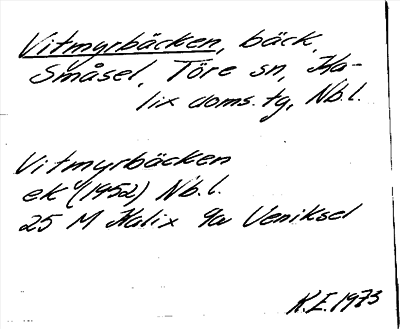 Vitmyrbäcken, bäck,
Småsel, Töre sn, Ka-
lix doms.tg, Nb.l.
Vitmyrbäcken
ek (1952) Nb.l.
25 M Kalix 9a Veniksel
K.E.1973